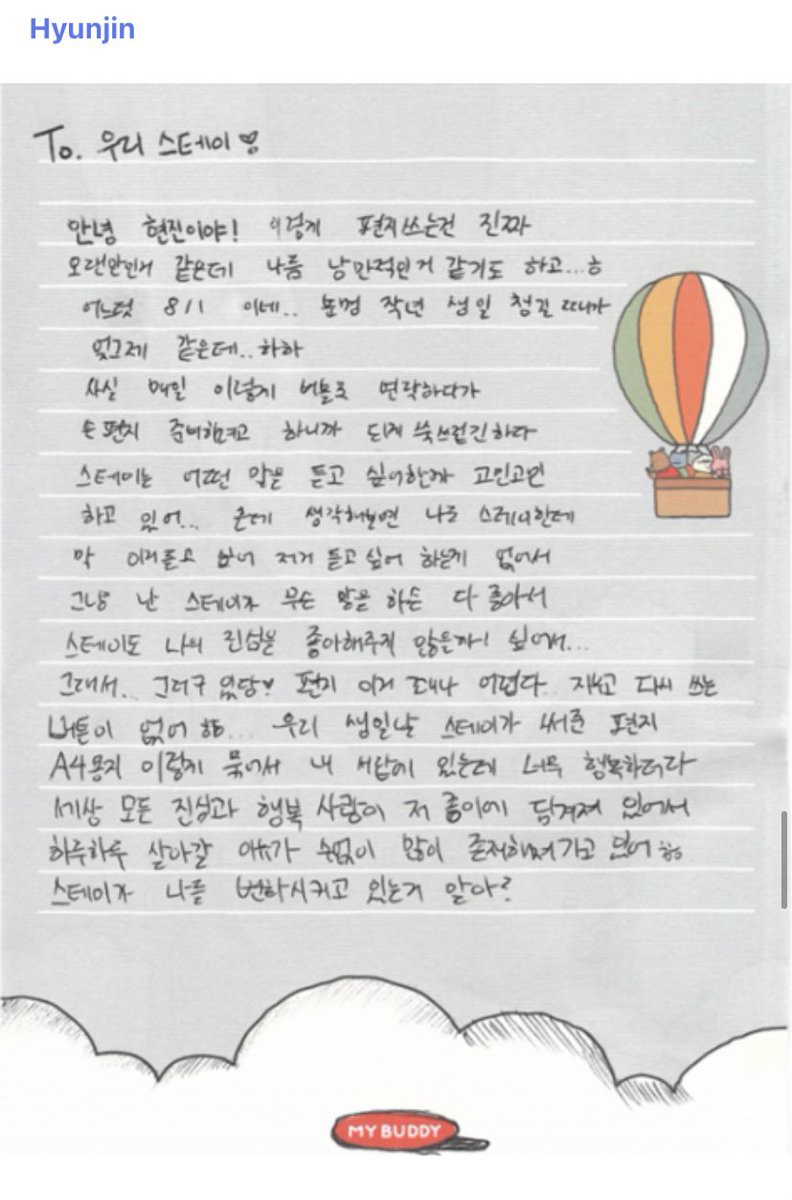 Hyunjin
To. 우리 스테이♥
안녕 현진이야! 이렇게 편지쓰는건 진짜
오랜만인거 같은데 나름 낭만적인거 같기도 하고...ㅎ
어느덧 8/1 이네.. 분명 작년 생일 챙긴 때가
엊그제 같은데..하하
사실 매일 이렇게 버블로 연락하다가
손편지 준비하려고 하니까 되게 쑥쓰럽긴하다
스테이는 어떤 말을 듣고 싶어할까 고민고민
하고 있어... 근데 생각해보면 나도 스테이한테
막 이거듣고 싶어 저거 듣고싶어 하는게 없어서
그냥 난 스테이가 무슨 말을 하든 다 좋아서
스테이도 나의 진심을 좋아해주지 않을까! 싶어서...
그래서.. 그러구 있당♥ 편지 이거 꽤나 어렵다 지우고 다시 쓰는
버튼이 없어 ㅎㅎ... 우리 생일날 스테이가 써준 편지
A4용지 이렇게 묶어서 내 서랍에 있는데 너무 행복하더라
세상 모든 진심과 행복 사랑이 저 종이에 담겨져 있어서
하루하루 살아갈 이유가 수없이 많이 존재해져가고 있어
스테이가 나를 변화시키고 있는거 알아?
MY BUDDY